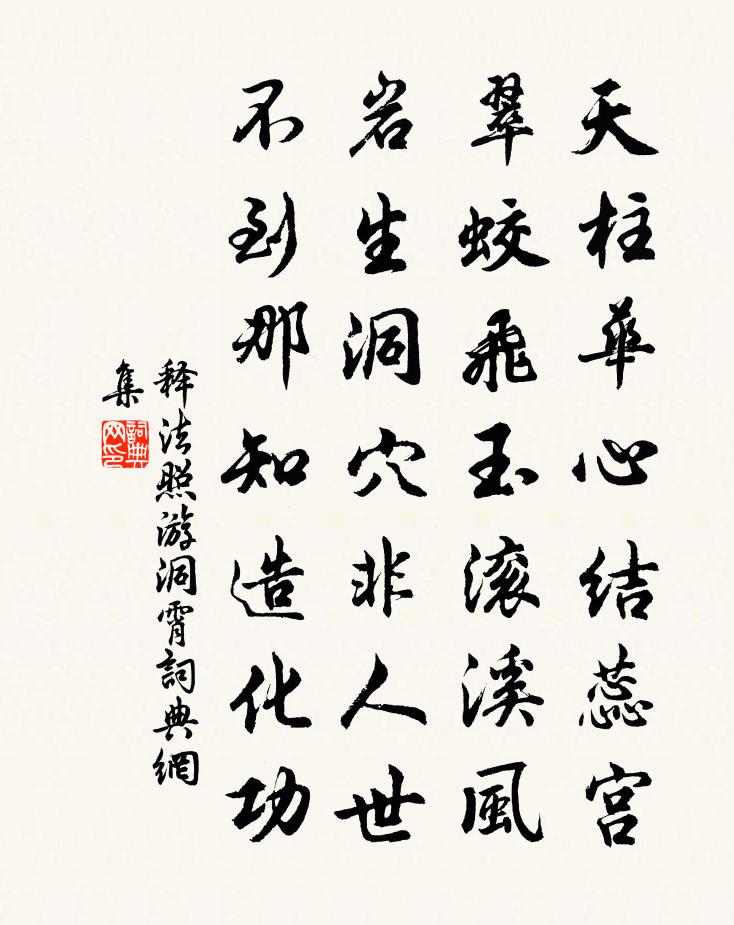 天柱華心结蕊宫
翠蛟飛玉滚溪風
岩生洞穴非人世
不到那知造化功
释法照游洞霄詞典網
集
詞典網印